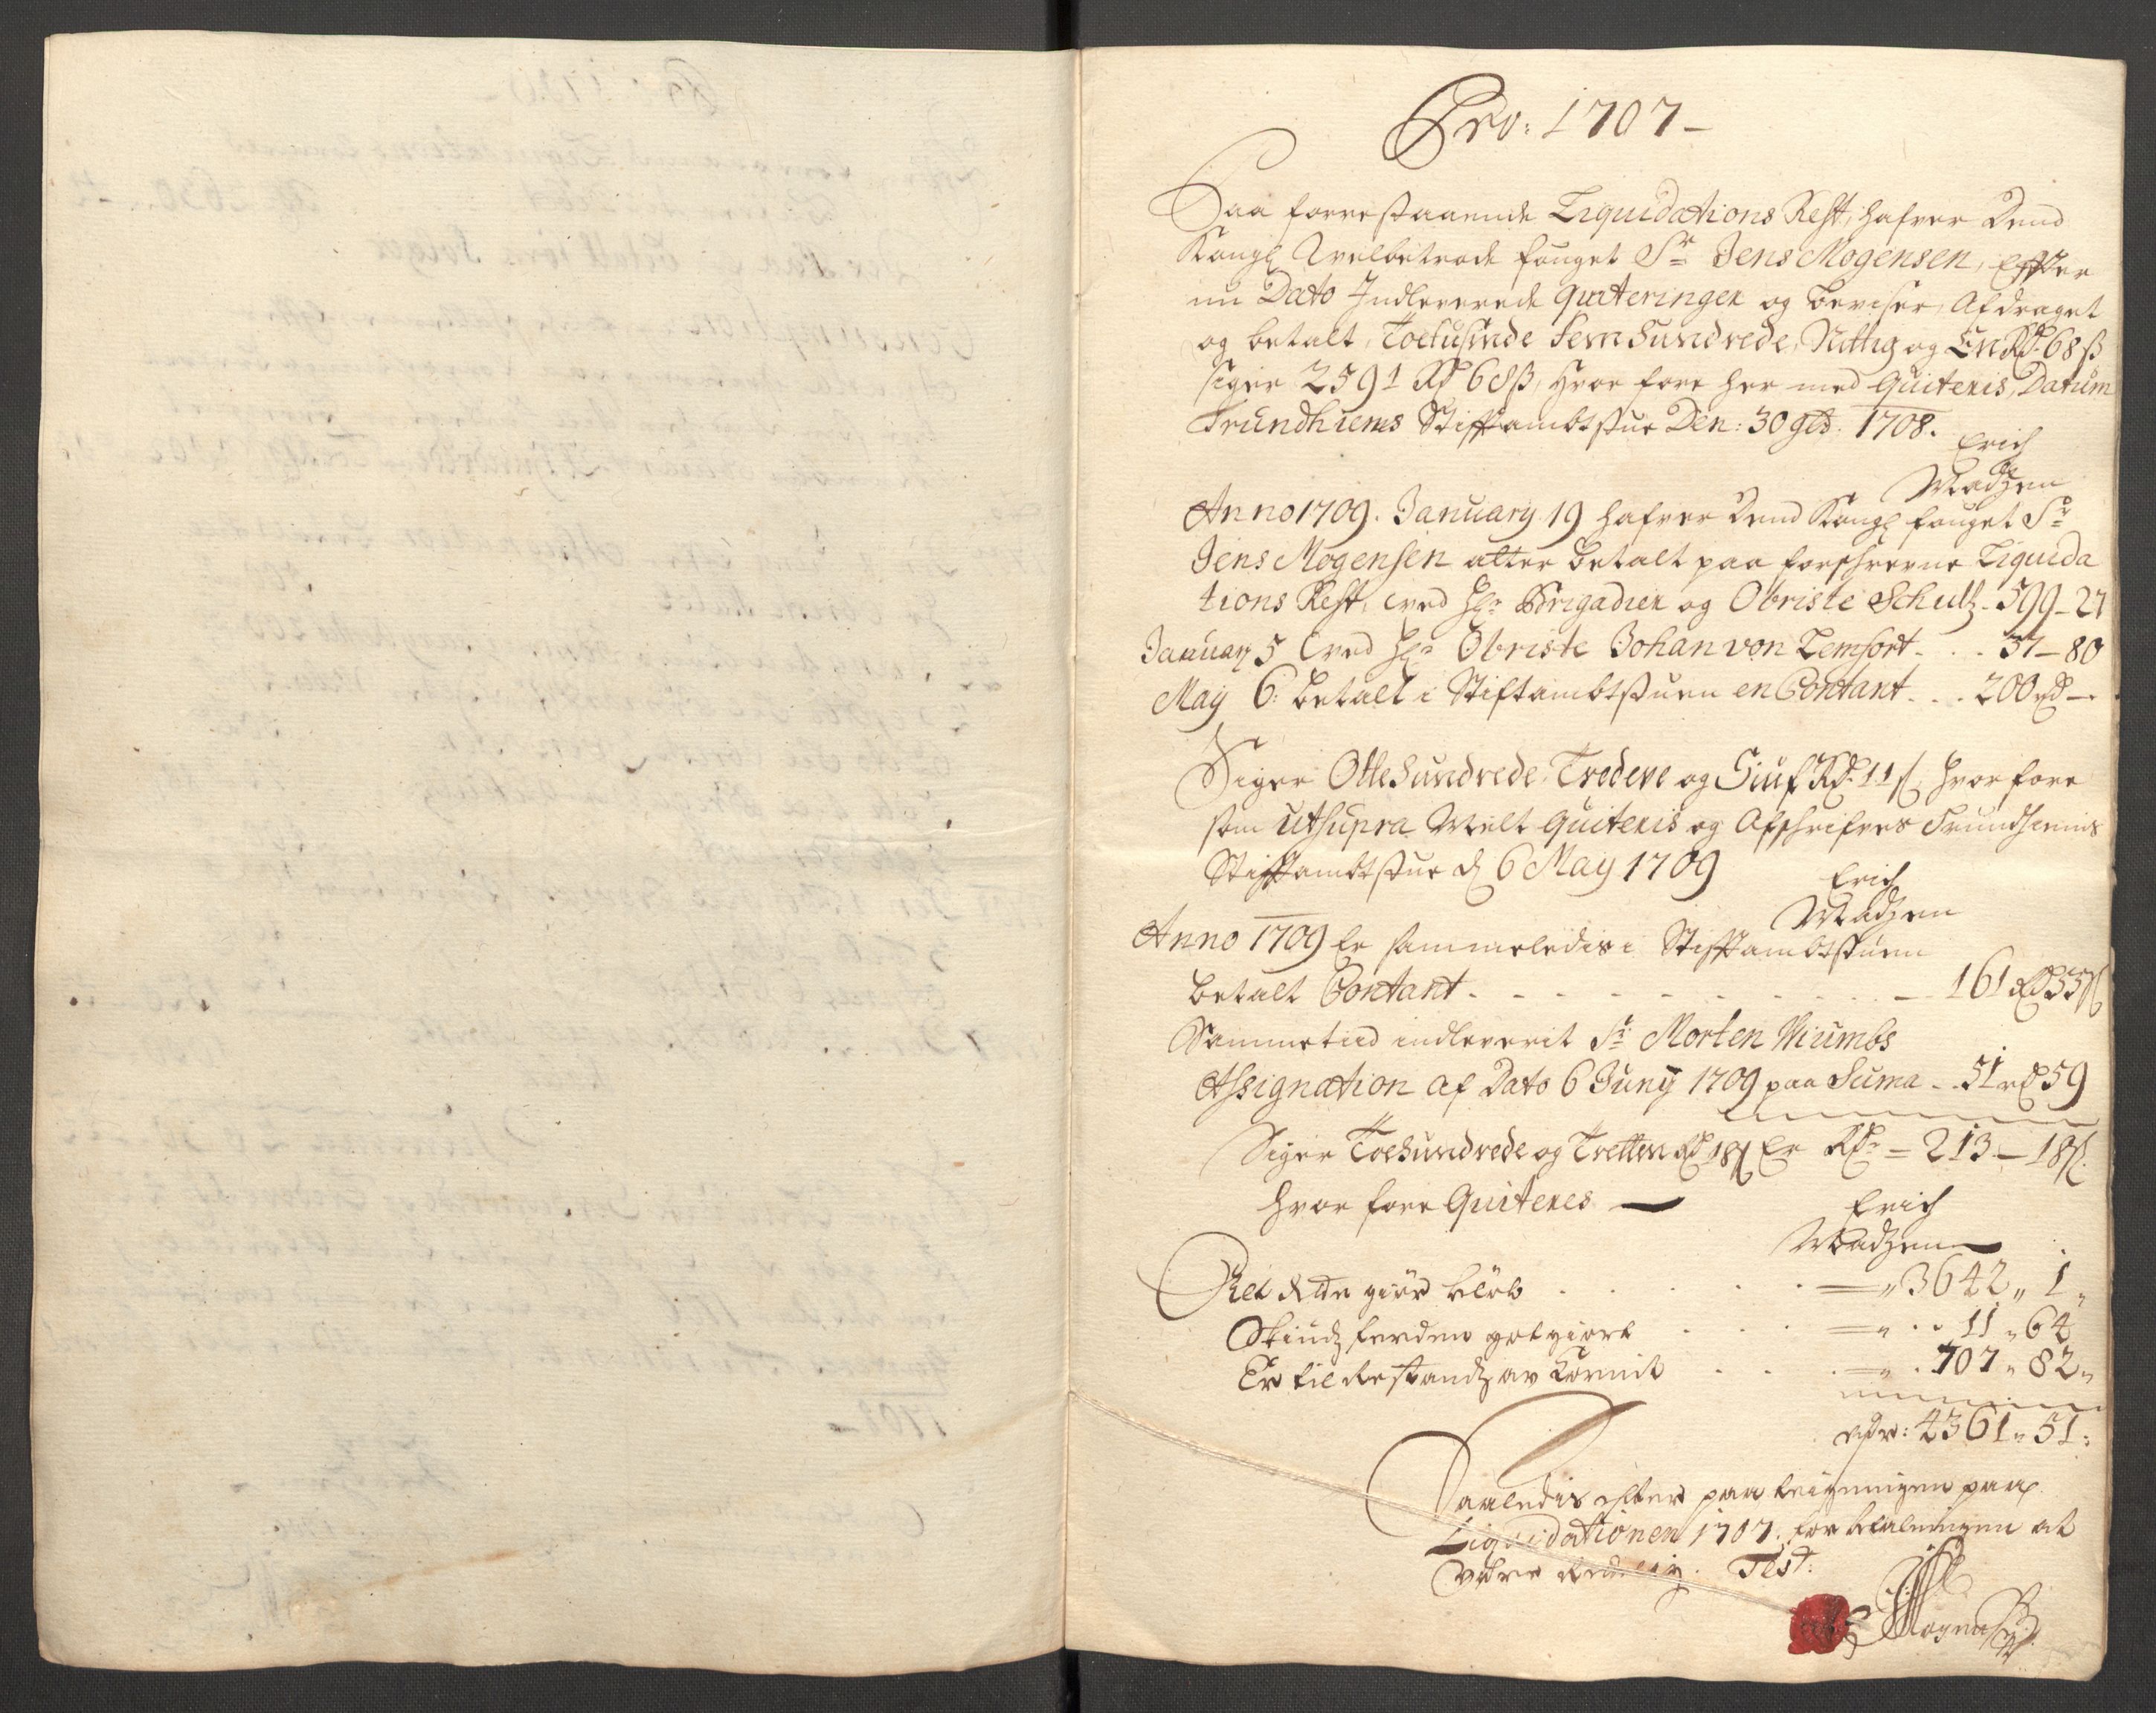 Pro: 1707 –
Paa forrestaaende Liquidations Rest, hafver Dend
Kongl Welbetrode fouget Sr Jens Mogensen, Effter
nu Dato Indleverede quiteringer og beviser, Afdraget
og betalt, Toetusinde Femhundrede, Nittig og En Rdr 68 ß
siger 2591 Rdr 68 ß, hvor fore her med Quiteris, Datum
Trundhiems Stifftambtstue Den: 30 1708.
Erich
Madzen
Anno 1709. January 19 hafver Dend Kongl fouget Sr
Jens Mogensen atter betalt paa forschrevne Liquida
tions Rest, ved Hr Brigadier og Obriste Schultz - 599 - 27
January 5 ved Hr Obriste Johan von Lemfort - . . 37 - 80
May 6: betalt i Stiftambtstuen en Contant - . . 200 rd -
Siger Ottehundrede, Tredeve og Siuf Rdr 11 ß, hvor fore
som utsupra Melt quiteris og Afschrifves Trundhiems
Stifftambtstue d 6 May 1709
Erich
Madzen
Anno 1709 Er sammeledis i Stifftambtstuen
betalt Contant - - - - - - - 161 Rd 55 ß
Samme tid indleverit Sr Morten Wiumbs
Assignation af Dato 6 Juny 1709 paa Suma - - 51 rd 59
Siger Toehundrede og Tretten Rd 18 ß Er Rdr = 213 - 18 ß.
hvor fore Quiteres —
Erich
Madzen
giör belöb . . . . . = „ 3642 „ 1 „
Skiudzferden got giort . . . = „ . . 11 „ 64
Er til Restandz av Kornit . . . = „ . 707 „ 82 „
rdr: 4361 „ 51:
Saaledis efter paa teigningen paa
Liquidationen 1707. for betalningen at
være Rectelig. Test:
JMogensen